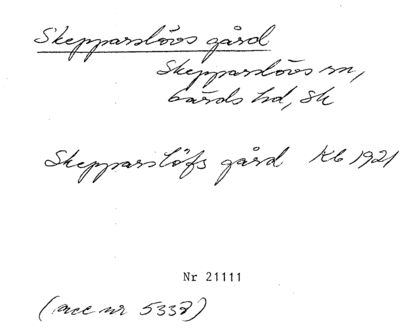 Skepparslövs gård
Skepparslövs sn,
Gärds hd, Sk
Skepparslöfs gård Kb 1921
Nr 21111
(acc nr 5337)